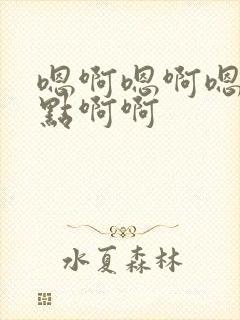 嗯啊嗯啊嗯
點啊啊
水夏森林